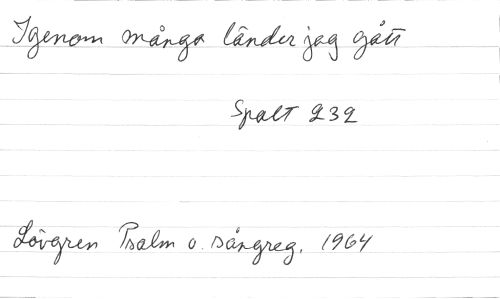 Igenom många länder jag gått
Spalt 232
Lövgren Psalm o. sångreg. 1964